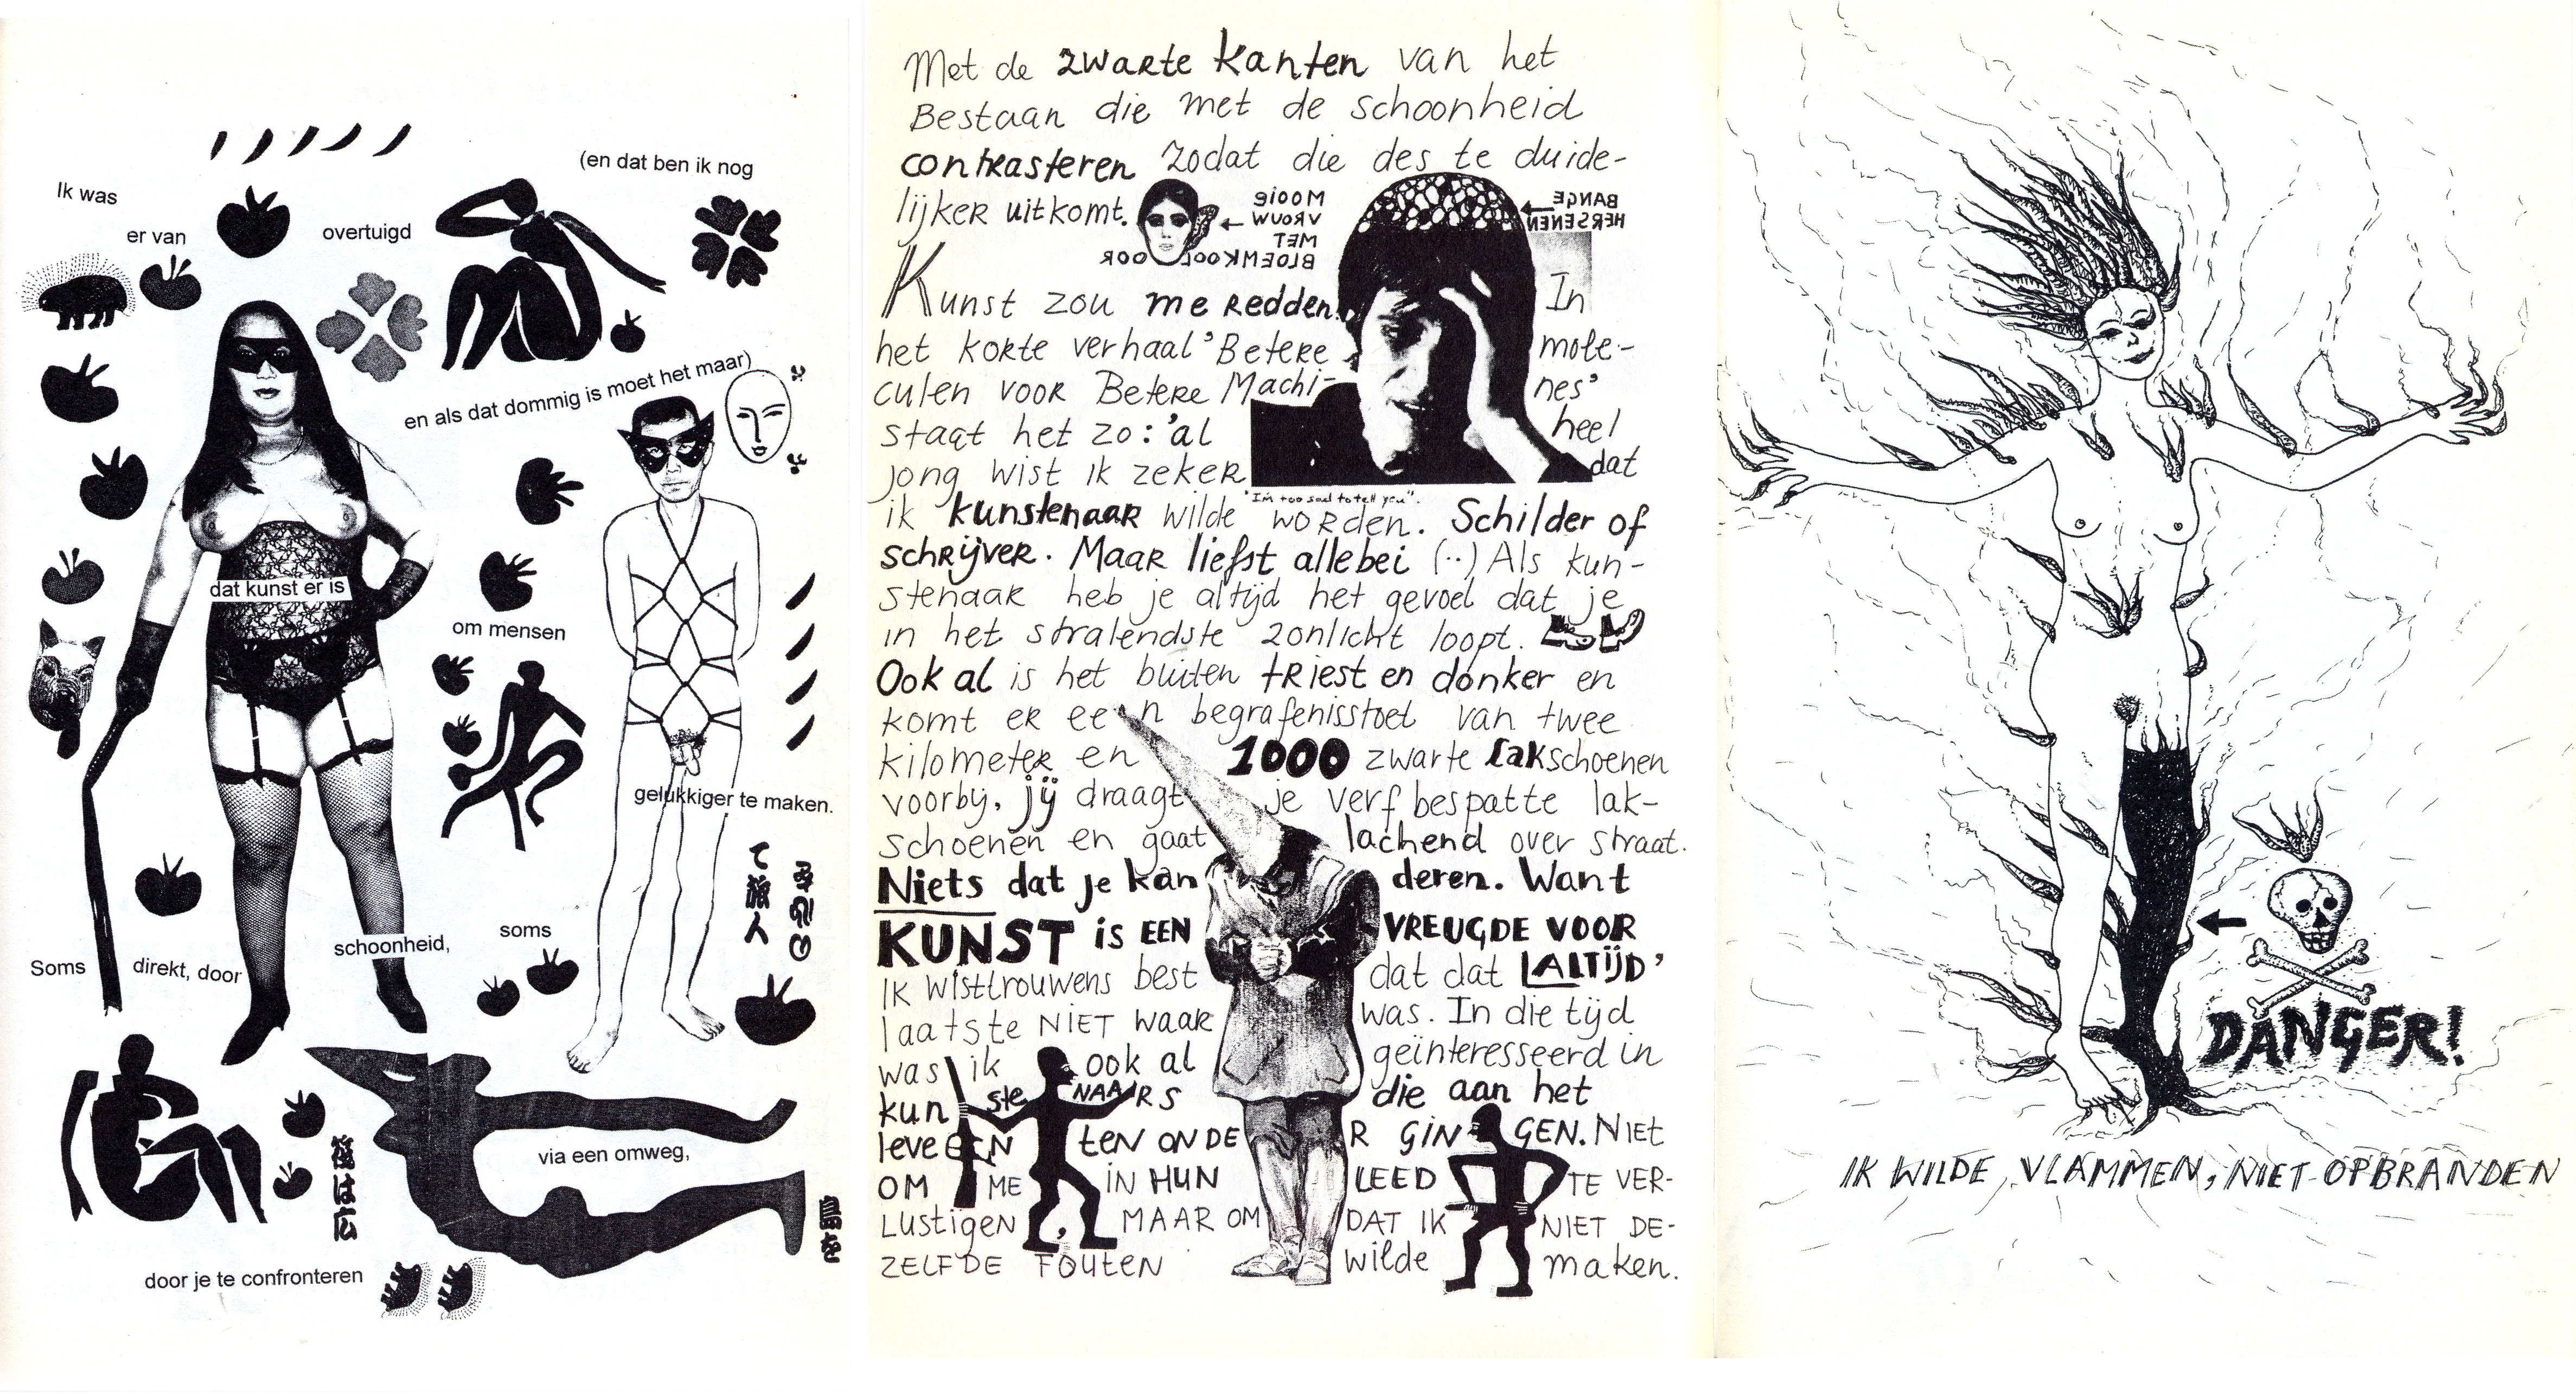 Ik was
er van
overtuigd
(en dat ben ik nog
en als dat dommig is moet het maar)
dat kunst er is
om mensen
gelukkiger te maken.
Soms
direkt, door
schoonheid,
soms
via een omweg,
door je te confronteren
Met de zwarte kanten van het
Bestaan die met de schoonheid
contrasteren zodat die des te duide-
lijker uitkomt.
MOOIE
VROUW
MET
BLOEMKOOL OOR
BANGE
HERSENEN
Kunst zou me redden. In
het korte verhaal 'Betere mole-
culen voor Betere Machi- nes'
staat het zo: 'al heel
jong wist ik zeker dat
"I'm too sad to tell you".
ik kunstenaar wilde worden. Schilder of
schrijver. Maar liefst allebei (..) Als kun-
stenaar heb je altijd het gevoel dat je
in het stralendste zonlicht loopt.
Ook al is het buiten triest en donker en
komt er een begrafenisstoet van twee
kilometer en 1000 zwarte lakschoenen
voorby, jij draagt je verf bespatte lak-
schoenen en gaat lachend over straat.
Niets dat je kan deren. Want
KUNST is EEN VREUGDE VOOR
ALTIJD'
Ik wist trouwens best dat dat
laatste NIET waar was. In die tijd
was ik ook al geïnteresseerd in
kunsteNAARS die aan het
leven ten ONDER GINGEN. Niet
OM ME IN HUN LEED TE VER-
LUSTIGEN, MAAR OMDAT IK NIET DE-
ZELFDE FOUTEN wilde maken.
DANGER!
IK WILDE VLAMMEN, NIET OPBRANDEN